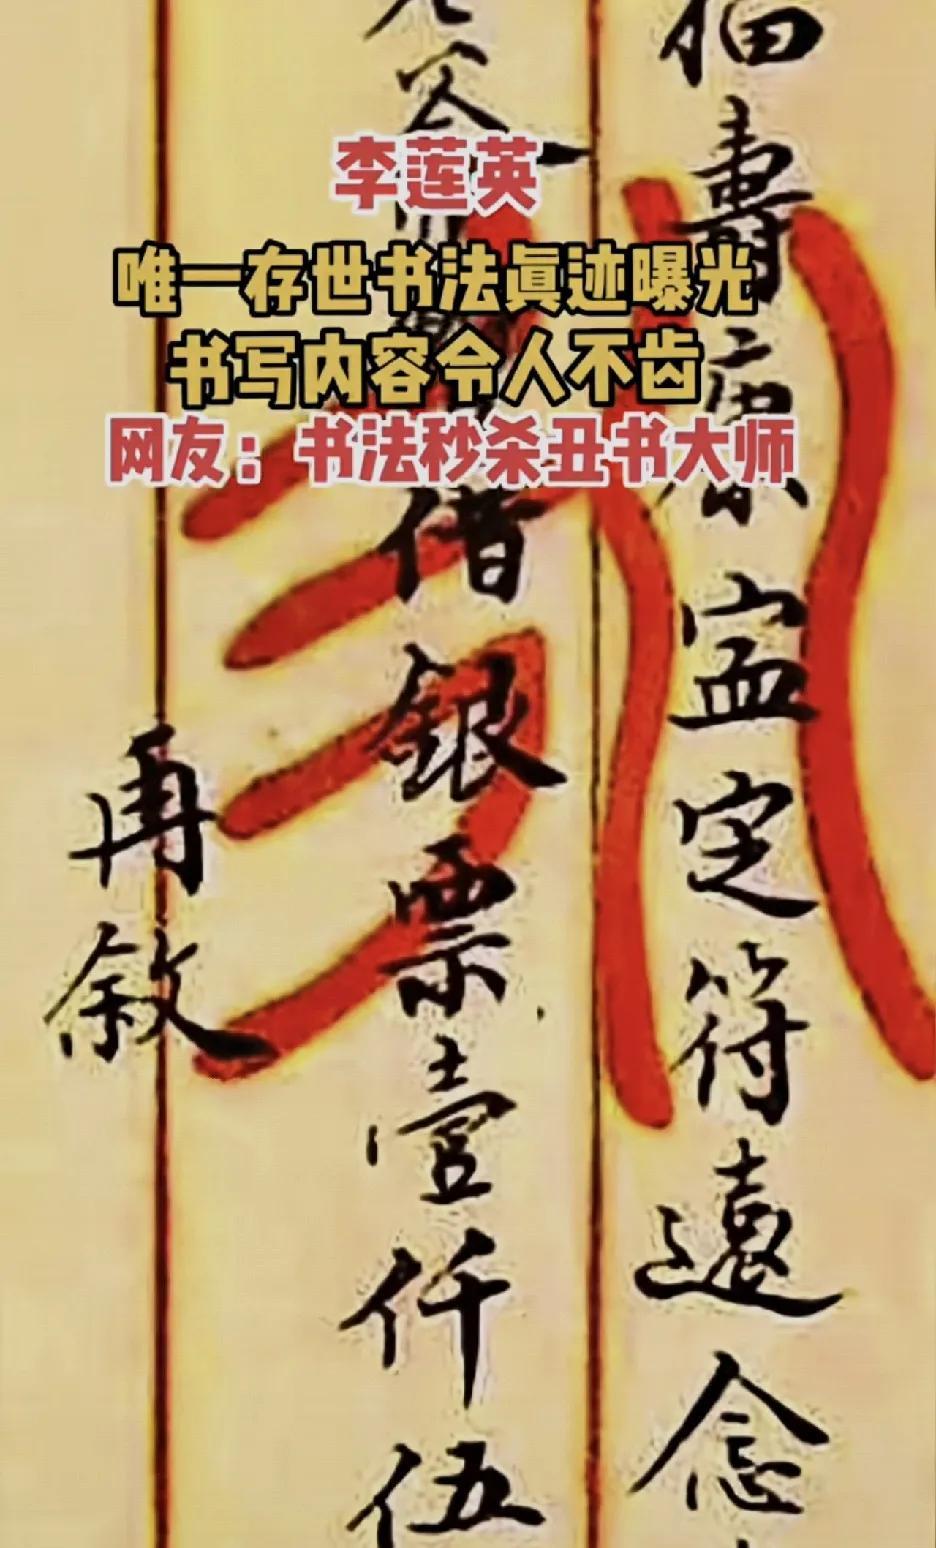 李莲英
唯一存世书法眞迹曝光
书写内容令人不齿
网友：书法秒杀丑书大师
福壽康寍定符遠念
借銀票壹仟伍
再敘